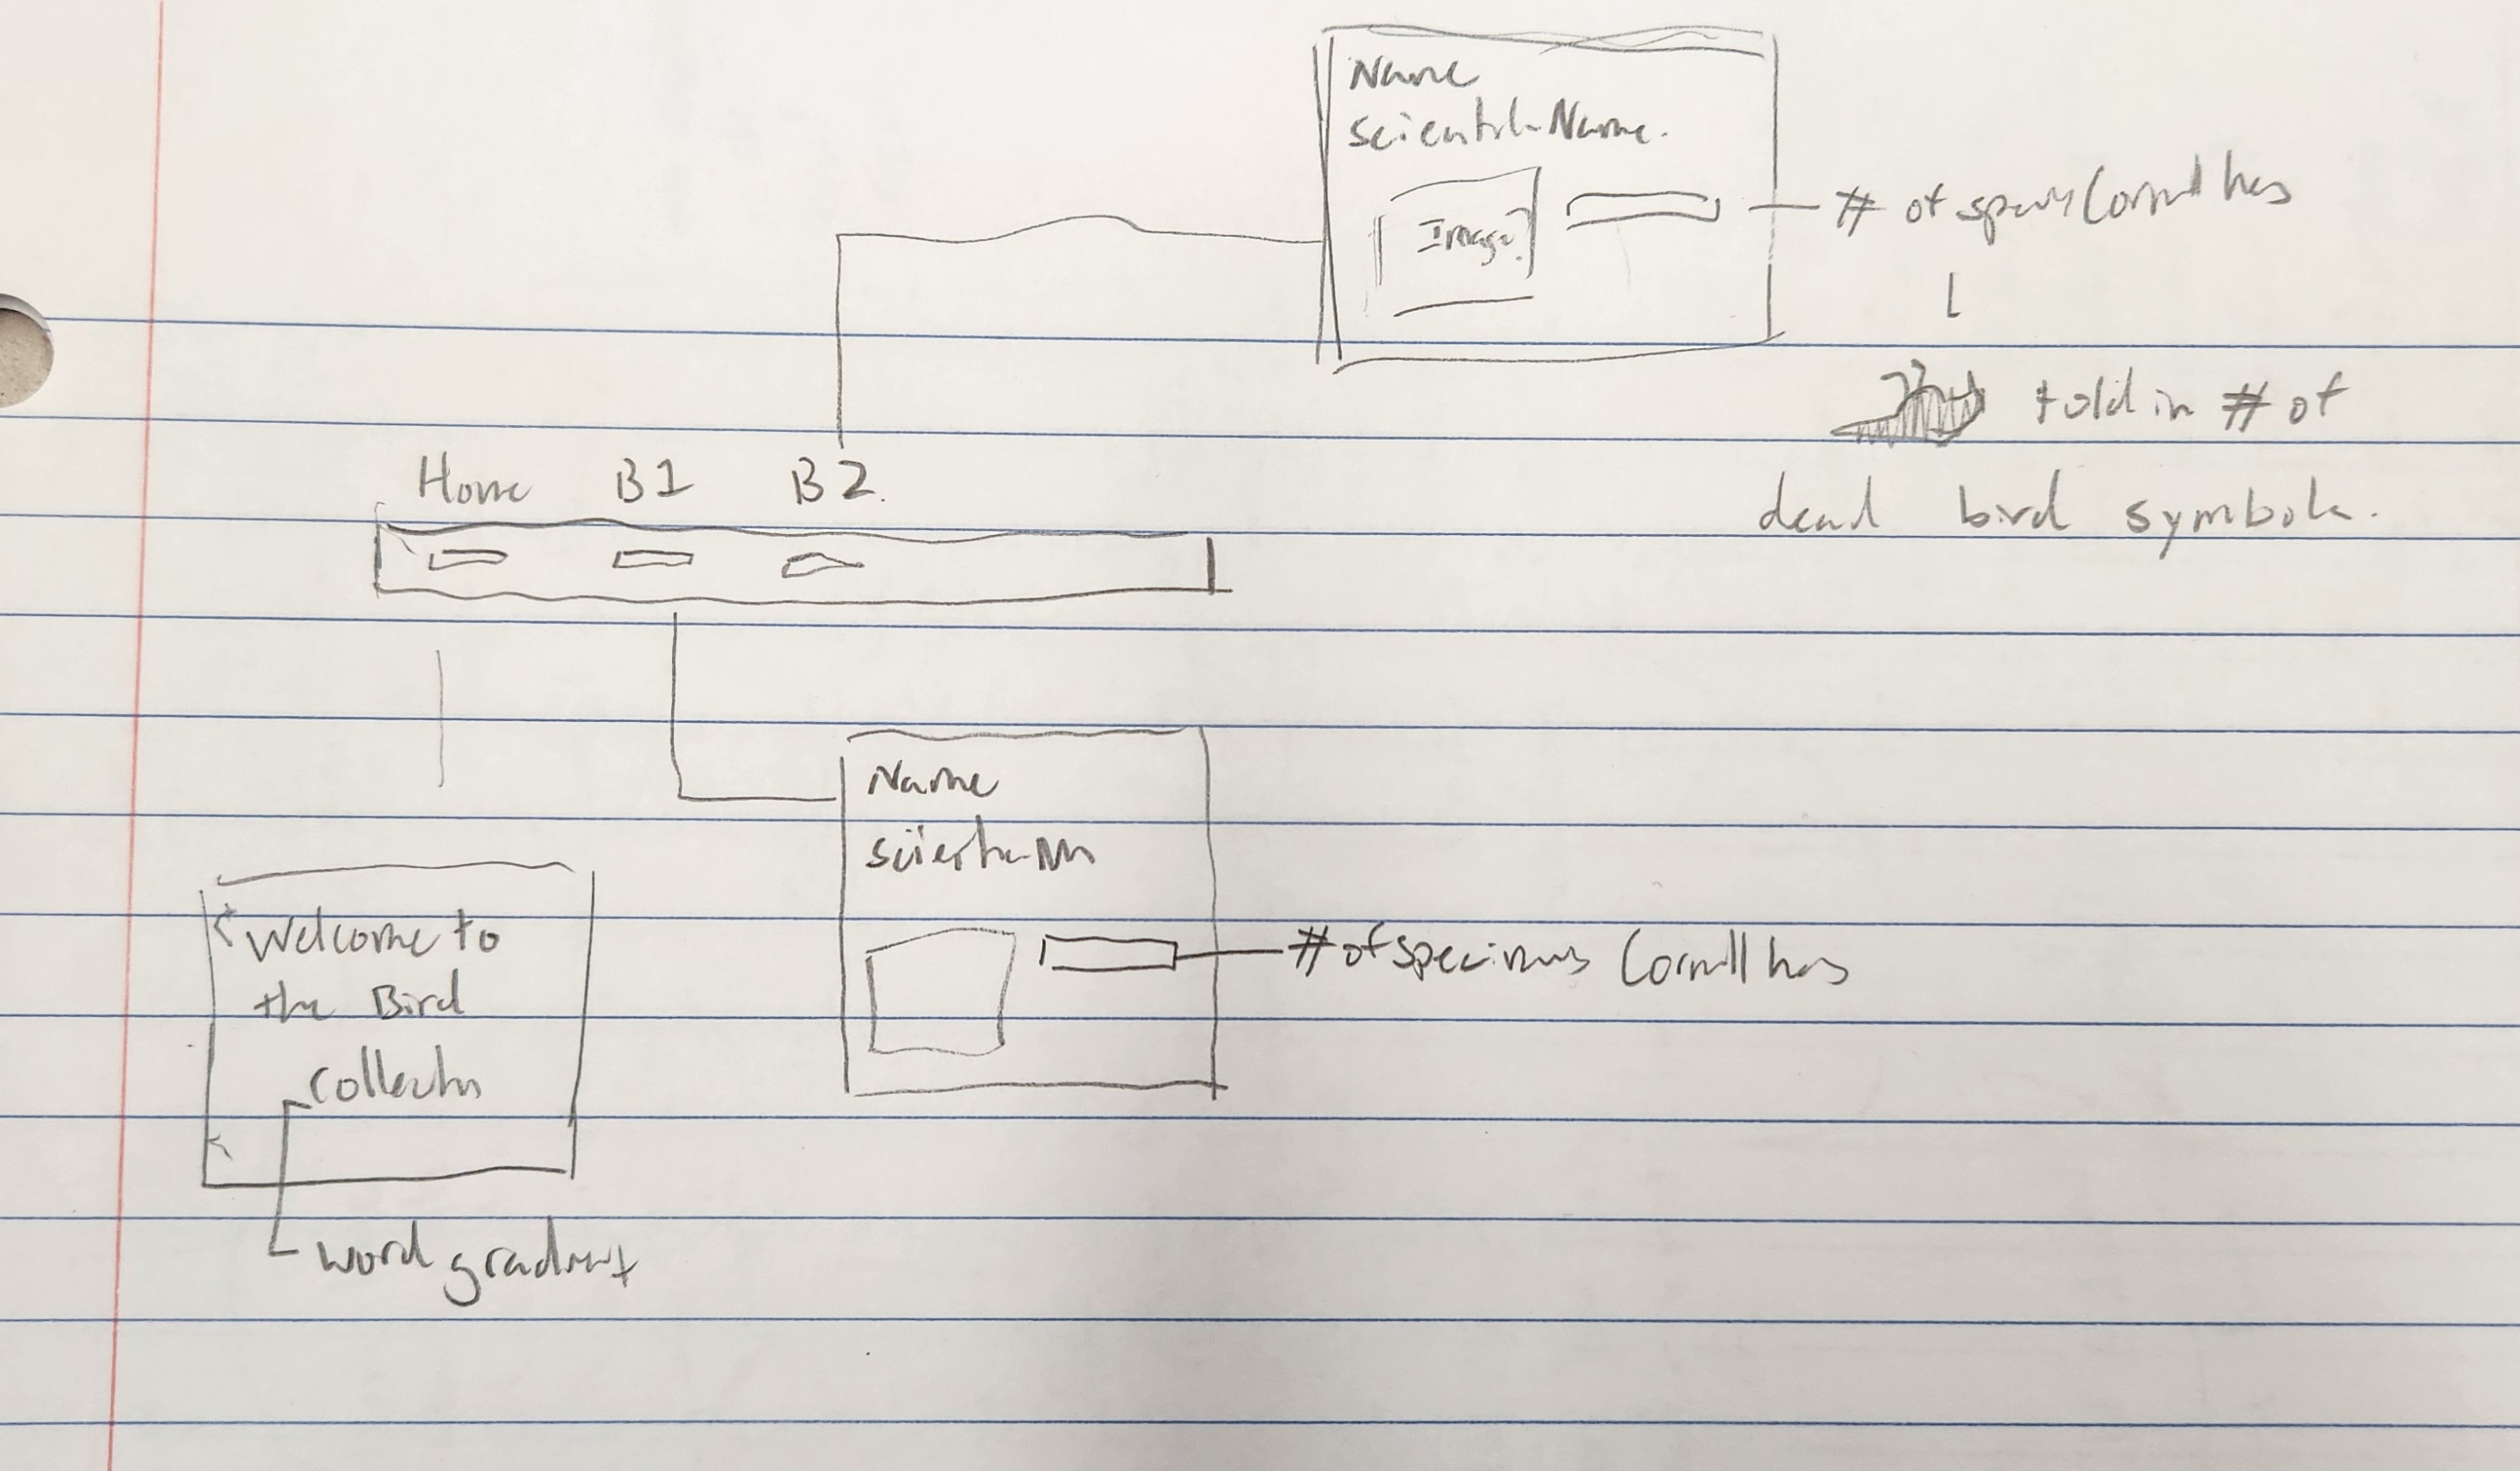 Name
Scientific Name.
Image
# of specims Cornell has
told in # of
dead bird symbols.
Home B1 B2.
Name
# of specimens Cornell has
Welcome to
the Bird
Collection
word gradient